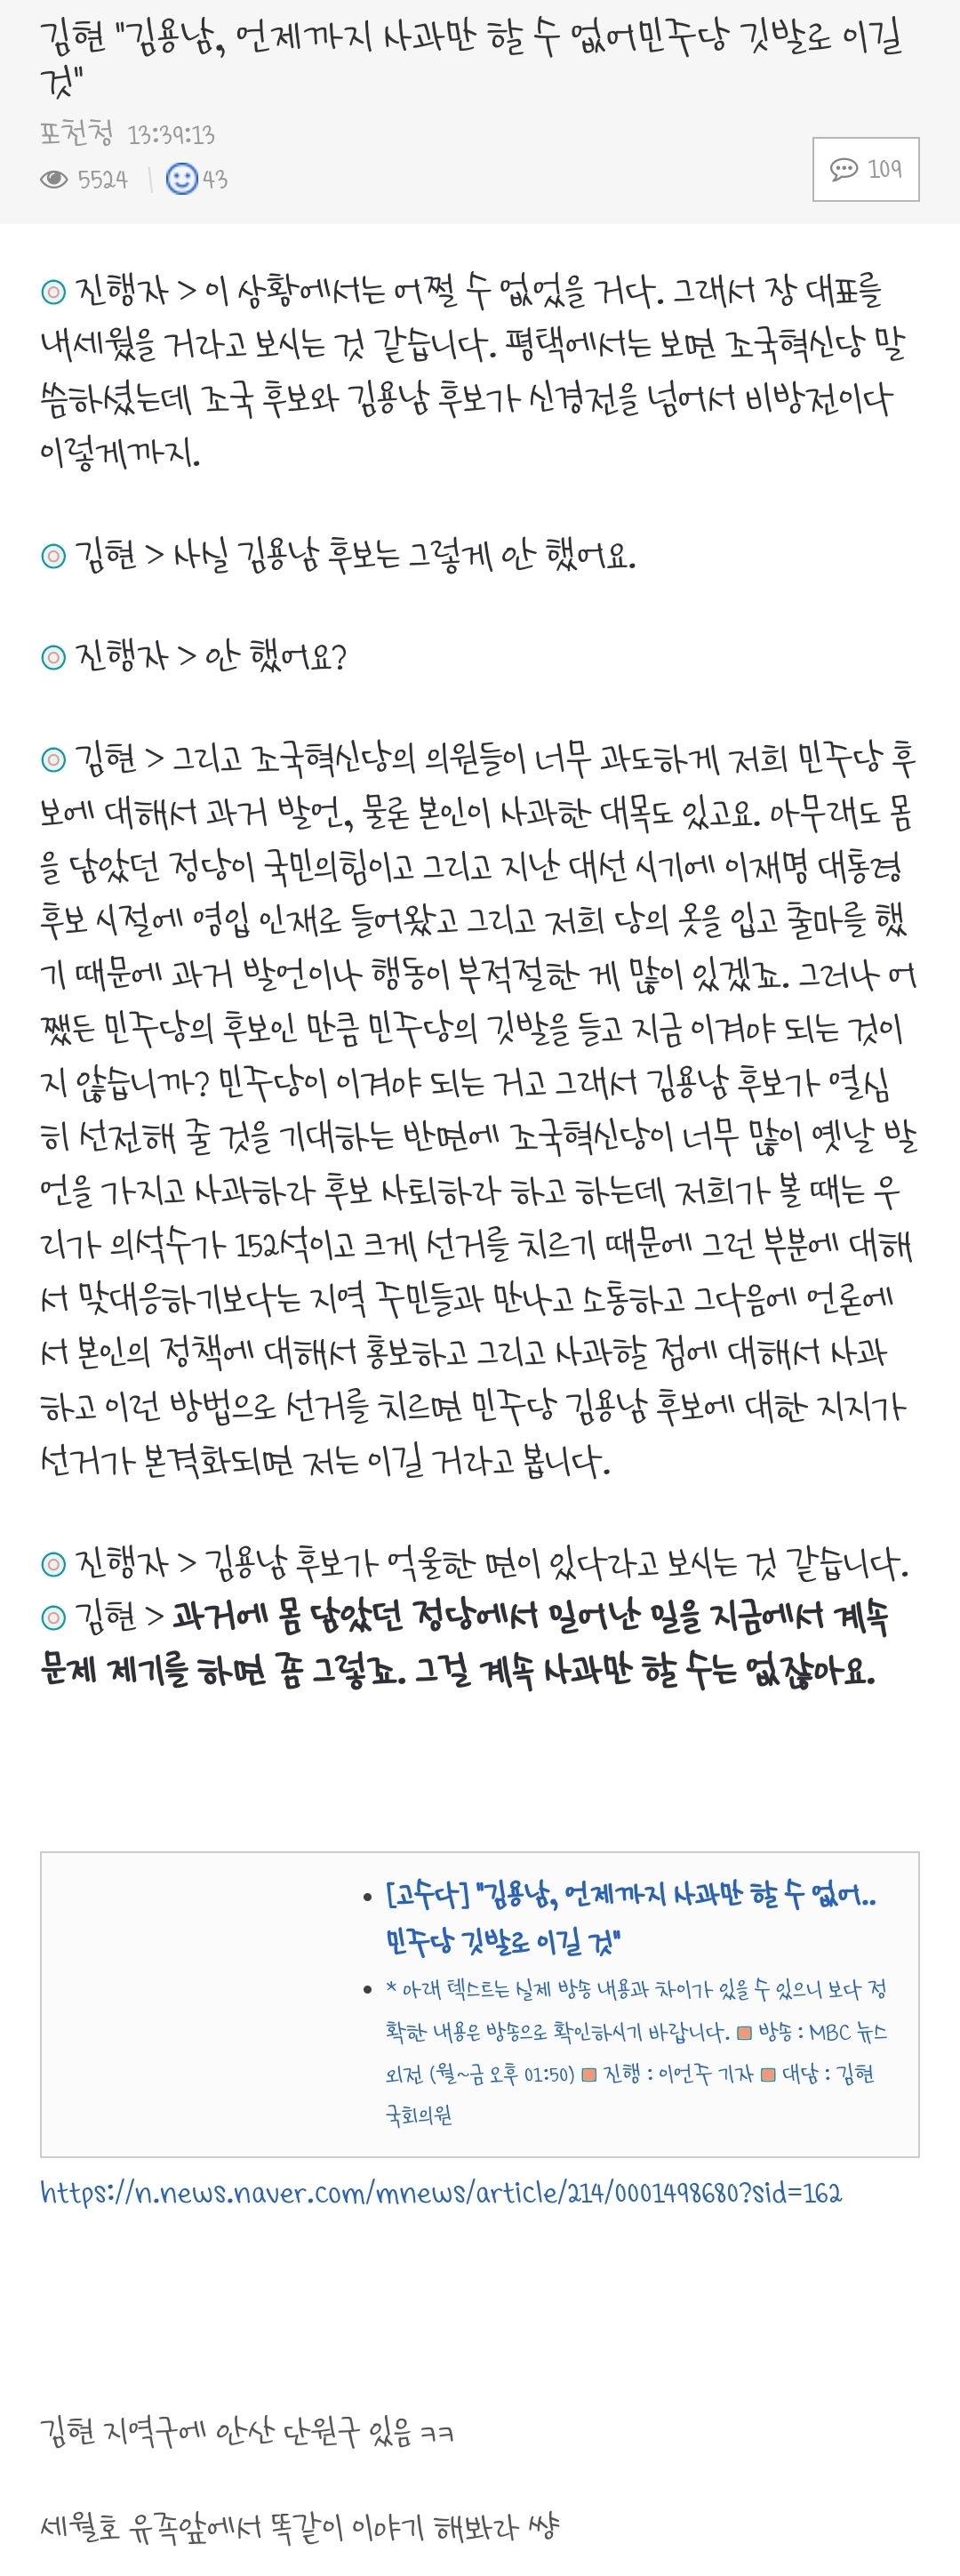 김현 "김용남, 언제까지 사과만 할 수 없어민주당 깃발로 이길
것"
포천청 13:39:13
5524 | 43
109
진행자 > 이 상황에서는 어쩔 수 없었을 거다. 그래서 장 대표를
내세웠을 거라고 보시는 것 같습니다. 평택에서는 보면 조국혁신당 말
씀하셨는데 조국 후보와 김용남 후보가 신경전을 넘어서 비방전이다
이렇게까지.
김현 > 사실 김용남 후보는 그렇게 안 했어요.
진행자 > 안 했어요?
김현 > 그리고 조국혁신당의 의원들이 너무 과도하게 저희 민주당 후
보에 대해서 과거 발언, 물론 본인이 사과한 대목도 있고요. 아무래도 몸
을 담았던 정당이 국민의힘이고 그리고 지난 대선 시기에 이재명 대통령
후보 시절에 영입 인재로 들어왔고 그리고 저희 당의 옷을 입고 출마를 했
기 때문에 과거 발언이나 행동이 부적절한 게 많이 있겠죠. 그러나 어
쨌든 민주당의 후보인 만큼 민주당의 깃발을 들고 지금 이겨야 되는 것이
지 않습니까? 민주당이 이겨야 되는 거고 그래서 김용남 후보가 열심
히 선전해 줄 것을 기대하는 반면에 조국혁신당이 너무 많이 옛날 발
언을 가지고 사과하라 후보 사퇴하라 하고 하는데 저희가 볼 때는 우
리가 의석수가 152석이고 크게 선거를 치르기 때문에 그런 부분에 대해
서 맞대응하기보다는 지역 주민들과 만나고 소통하고 그다음에 언론에
서 본인의 정책에 대해서 홍보하고 그리고 사과할 점에 대해서 사과
하고 이런 방법으로 선거를 치르면 민주당 김용남 후보에 대한 지지가
선거가 본격화되면 저는 이길 거라고 봅니다.
진행자 > 김용남 후보가 억울한 면이 있다라고 보시는 것 같습니다.
김현 > 과거에 몸 담았던 정당에서 일어난 일을 지금에서 계속
문제 제기를 하면 좀 그렇죠. 그걸 계속 사과만 할 수는 없잖아요.
• [고수다] "김용남, 언제까지 사과만 할 수 없어..
민주당 깃발로 이길 것"
• * 아래 텍스트는 실제 방송 내용과 차이가 있을 수 있으니 보다 정
확한 내용은 방송으로 확인하시기 바랍니다. ■ 방송 : MBC 뉴스
외전 (월~금 오후 01:50) ■ 진행 : 이언주 기자 ■ 대담 : 김현
국회의원
https://n.news.naver.com/mnews/article/214/0001498680?sid=162
김현 지역구에 안산 단원구 있음 ㅋㅋ
세월호 유족앞에서 똑같이 이야기 해봐라 썅